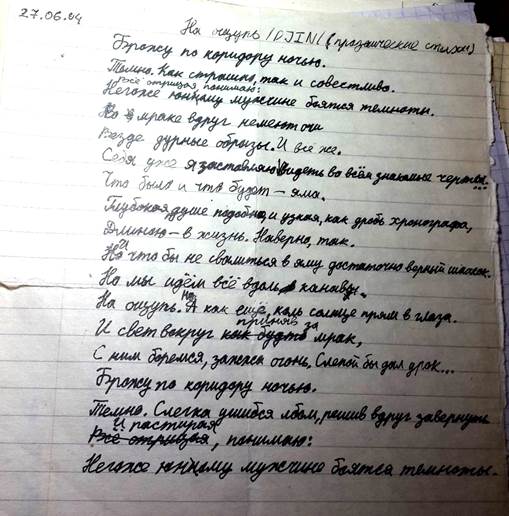 27.06.04
На ощупь /DJIN/ (прозаические стихи)
Брожу по коридору ночью.
Темно. Как страшно, так и совестливо.
Всё отрицая, понимаю:
Негоже юнцому мужчине боятся темноты.
Но мраке вдруг немеют очи
Везде дурные образы. И всё же.
Себя уже я заставляю видеть во всём знакомые черты...
Что было и что будет – яма.
Глубокая, душе подобна, и узкая, как дробь хронографа,
Длиною – в жизнь. Наверно, так.
И что бы не свалиться в яму достаточно верный шажок.
Но мы идём всё вдоль канавы.
На ощупь. А как ещё, коль солнце прям в глаза.
приняв за
И свет вокруг как будто мрак,
С ним боремся, зажжа огонь. Слепой бы дал драк...
Брожу по коридору ночью.
Темно. Слегка ушибся лбом, решив вдруг завернуть
И растирая
Всё отрицая, понимаю:
Негоже юнцому мужчине боятся темноты.